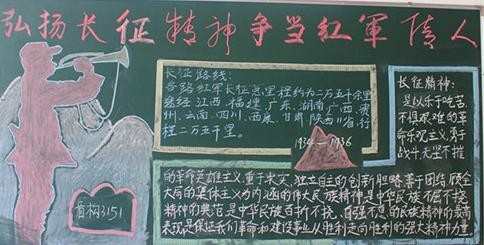 弘扬长征精神争当红軍人
长征路线:
各路红军长征总里程约为二万五千余里
途经江西、福建、广东、湖南、广西、贵
州、云南、四川、西康、甘肃、陕西11省,行
程二万五千里。
1934—1936
长征精神:
是以乐于吃苦、
不惧艰难的革
命乐观主义;勇于
战斗、无坚不摧
的革命英雄主义;重于求实、独立自主的创新胆略;善于团结、顾全
大局的集体主义为内涵的伟大民族精神是中华民族不屈不挠
精神的典范是中华民族百折不挠、自强不息的民族精神的最高
表现,是保证我们革命和建设事业从胜利走向胜利的强大精神力量
3151